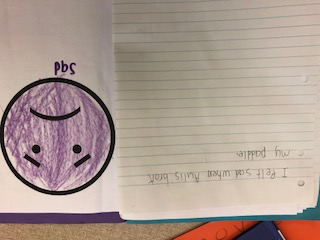 sad
I felt sad when brok
my paddle.